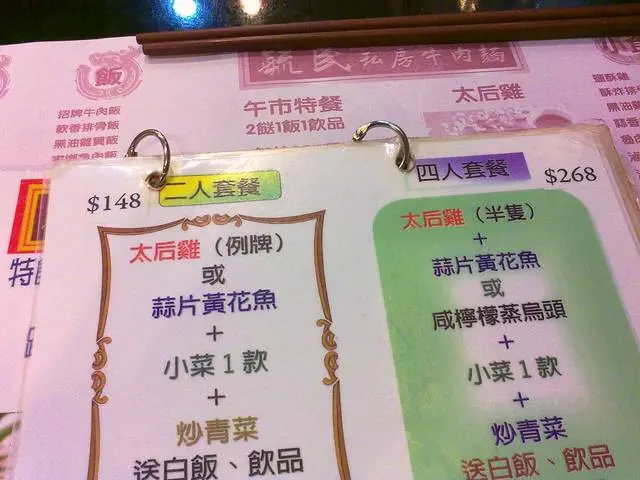 飯
招牌牛肉飯
軟香排骨飯
黑油雞髀飯
毓民私房牛肉麵
午市特餐
2餸1飯1飲品
太后雞
小
鹽酥雞
酥炸排骨
黑油雞
蒜香
特
$148
二人套餐
太后雞（例牌）
或
蒜片黃花魚
+
小菜1款
+
炒青菜
送白飯、飲品
四人套餐
$268
太后雞（半隻）
+
蒜片黃花魚
或
咸檸檬蒸烏頭
+
小菜1款
+
炒青菜
送白飯、飲品